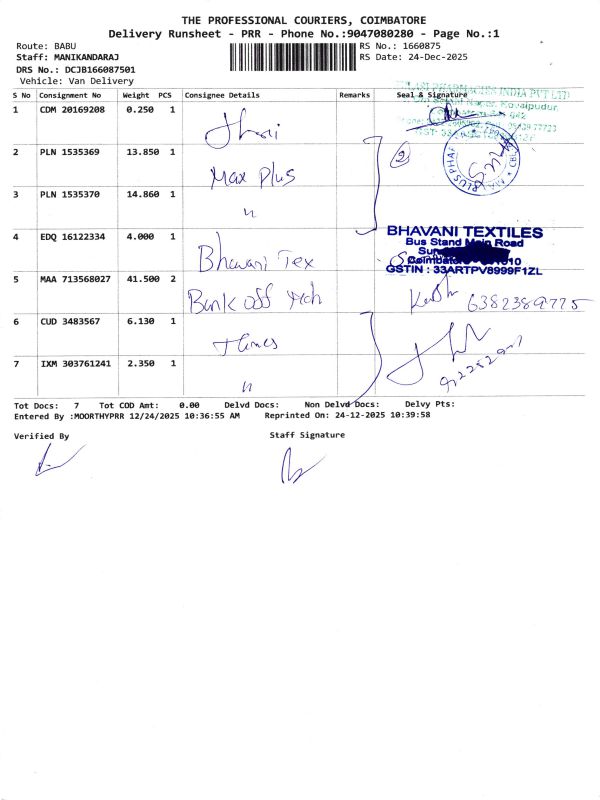 THE PROFESSIONAL COURIERS, COIMBATORE
Delivery Runsheet - PRR - Phone No.:9047080280 - Page No.:1
Route: BABU
RS No.: 1660875
Staff: MANIKANDARAJ
RS Date: 24-Dec-2025
DRS No.: DCJB166087501
Vehicle: Van Delivery
S No Consignment No Weight PCS Consignee Details Remarks Seal & Signature
1 CDM 20169208 0.250 1
2 PLN 1535369 13.850 1 Max Plus 2
3 PLN 1535370 14.860 1 "
BHAVANI TEXTILES
Bus Stand Main Road
GSTIN : 33ARTPV8999F1ZL
4 EDQ 16122334 4.000 1 Bhavani Tex
5 MAA 713568027 41.500 2 Bank off
6 CUD 3483567 6.130 1
7 IXM 303761241 2.350 1 "
Tot Docs: 7 Tot COD Amt: 0.00 Delvd Docs: Non Delvd Docs: Delvy Pts:
Entered By :MOORTHYPRR 12/24/2025 10:36:55 AM Reprinted On: 24-12-2025 10:39:58
Verified By Staff Signature